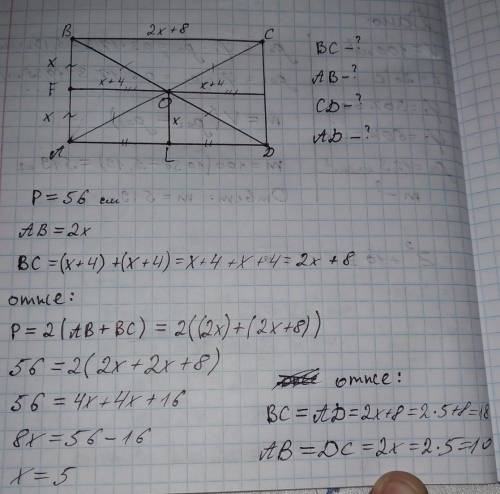 B 2x+8 C
x
F x+4 x+4
O
x x
A L D
BC-?
AB-?
CD-?
AD-?
P=56 см
AB=2x
BC=(x+4)+(x+4)=x+4+x+4=2x+8
отже:
P=2(AB+BC)=2((2x)+(2x+8))
56=2(2x+2x+8)
56=4x+4x+16
8x=56-16
x=5
отже:
BC=AD=2x+8=2·5+8=18
AB=DC=2x=2·5=10